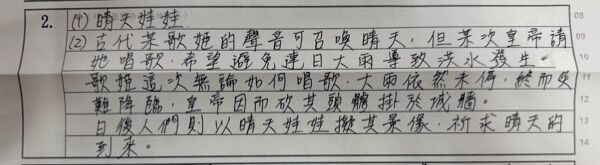 2. (1) 晴天娃娃 08
(2) 古代某歌姬的聲音可召喚晴天，但某次皇帝請 09
她唱歌，希望避免連日大雨導致洪水發生。 10
歌姬這次無論如何唱歌，大雨依然未停，終而災 11
難降臨，皇帝因而砍其頭髗掛於城牆。 12
日後人們則以晴天娃娃擬其景像，祈求晴天的 13
到來。 14